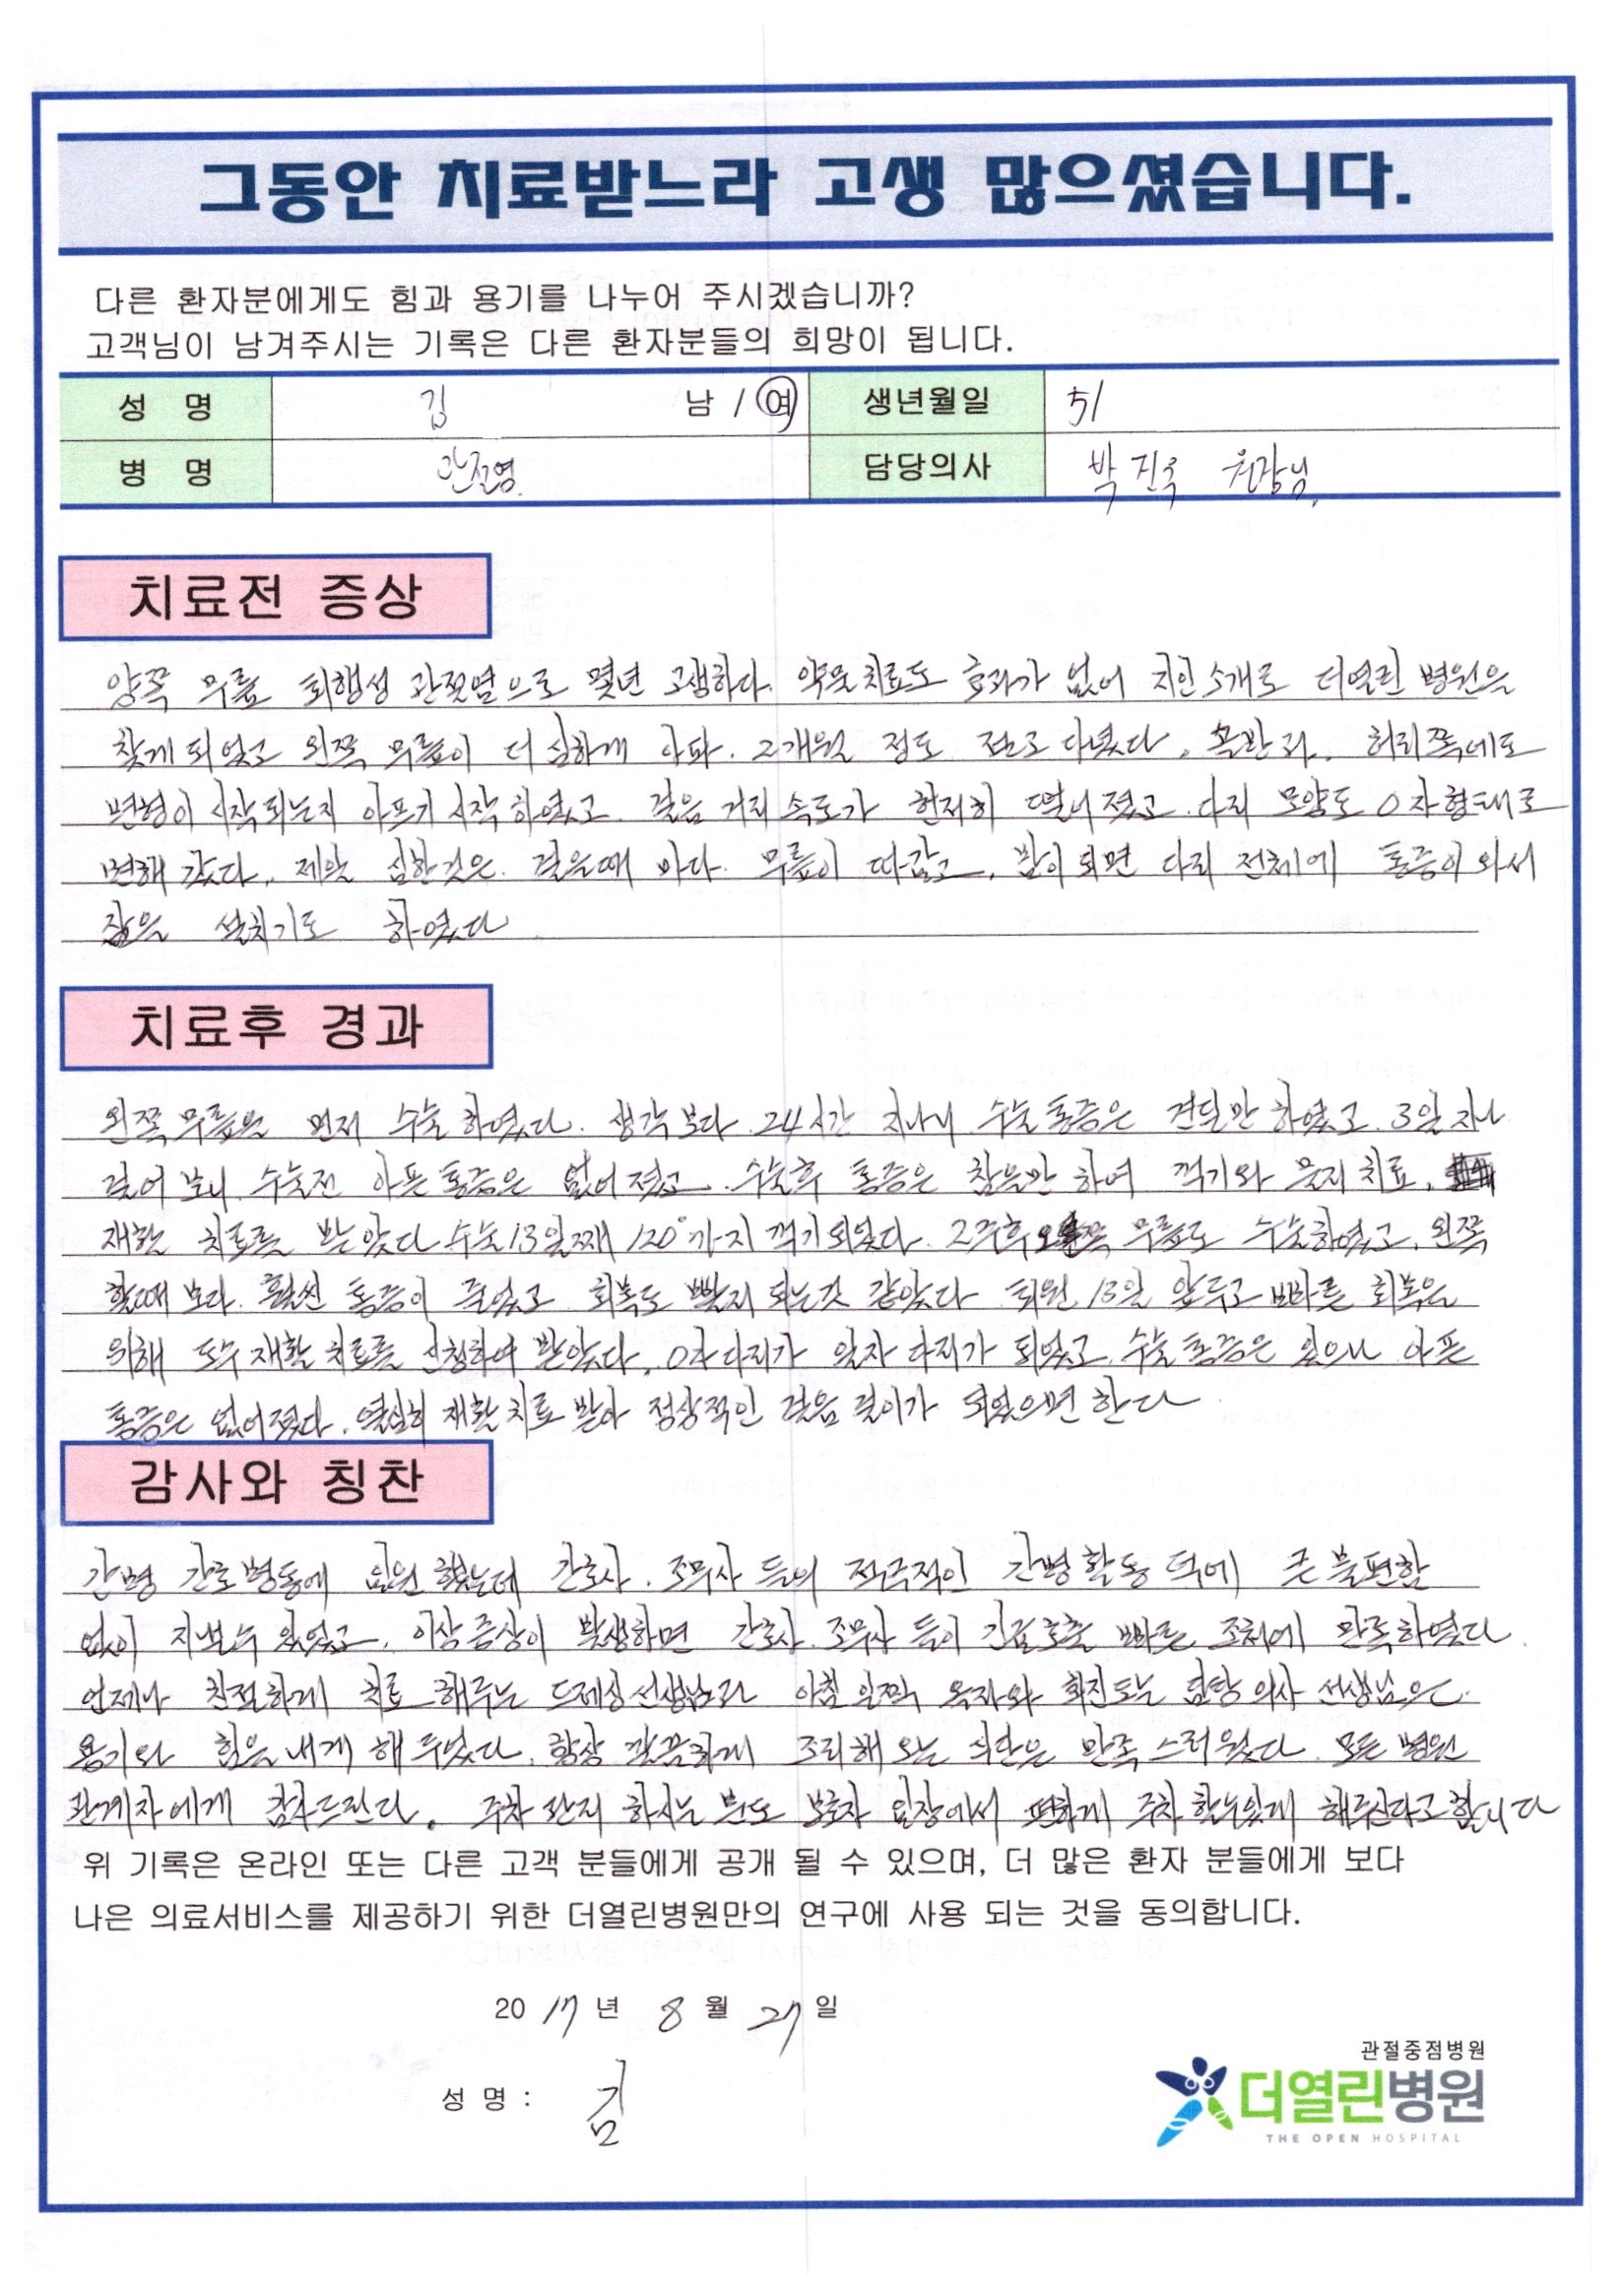 그동안 치료받느라 고생 많으셨습니다.
다른 환자분에게도 힘과 용기를 나누어 주시겠습니까?
고객님이 남겨주시는 기록은 다른 환자분들의 희망이 됩니다.
성 명 김 남 / 여 생년월일 51
병 명 관절염. 담당의사 박진욱 원장님.
치료전 증상
양쪽 무릎 퇴행성 관절염으로 몇년 고생하다. 약물치료도 효과가 없어 지인소개로 더열린 병원을
찾게 되었고 왼쪽 무릎이 더 심하게 아파. 2개월 정도 다녔다. 골반과. 허리쪽에도
변형이 시작되는지 아프기 시작하였고. 걸음 거리 속도가 현저히 떨어졌고. 다리 모양도 O자형태로
변해 갔다. 제일 심한것은. 걸을때 마다. 무릎이 따갑고. 밤이 되면 다리 전체에 통증이 와서
잠을 설치기도 하였다
치료후 경과
왼쪽 무릎을 먼저 수술하였다. 생각보다. 24시간 지나니 수술통증은 견딜만 하였고. 3일 지나
걸어 보니. 수술전 아픈통증은 없어졌고. 수술후 통증은 참을만 하여 꺽기와 물리치료.
재활 치료를 받았다 수술13일째 120°까지 꺽기되었다. 2주후 무릎도 수술하였고. 왼쪽
할때 보다. 훨씬 통증이 줄었고 회복도 빨리 되는것 같았다 퇴원 13일 앞두고 빠른 회복을
위해 도수재활 치료를 신청하여 받았다. O자다리가 일자 다리가 되었고. 수술통증은 있으나 아픈
통증은 없어졌다. 열심히 재활치료 받아 정상적인 걸음 걸이가 되었으면 한다
감사와 칭찬
간병 간호병동에 입원했는데 간호사. 조무사 들의 적극적인 간병활동 덕에 큰 불편함
없이 지낼수 있었고. 이상증상이 발생하면 간호사. 조무사 들이 긴급호출 빠른 조처에 만족하였다.
언제나 친절하게 치료 해주는 드레싱선생님과 아침 일찍 회진도는 담당의사 선생님은
용기와 힘을 내게 해 주었다. 항상 깔끔하게 조리해 오는 식단은 만족 스러웠다. 모든 병원
관계자에게 감사드린다. 주차 관리 하시는 분도 보호자 입장에서 편하게 주차할수있게 해주신다고합니다
위 기록은 온라인 또는 다른 고객 분들에게 공개 될 수 있으며, 더 많은 환자 분들에게 보다
나은 의료서비스를 제공하기 위한 더열린병원만의 연구에 사용 되는 것을 동의합니다.
2017년 8월 27일
성 명 : 김
관절중점병원
더열린병원
THE OPEN HOSPITAL